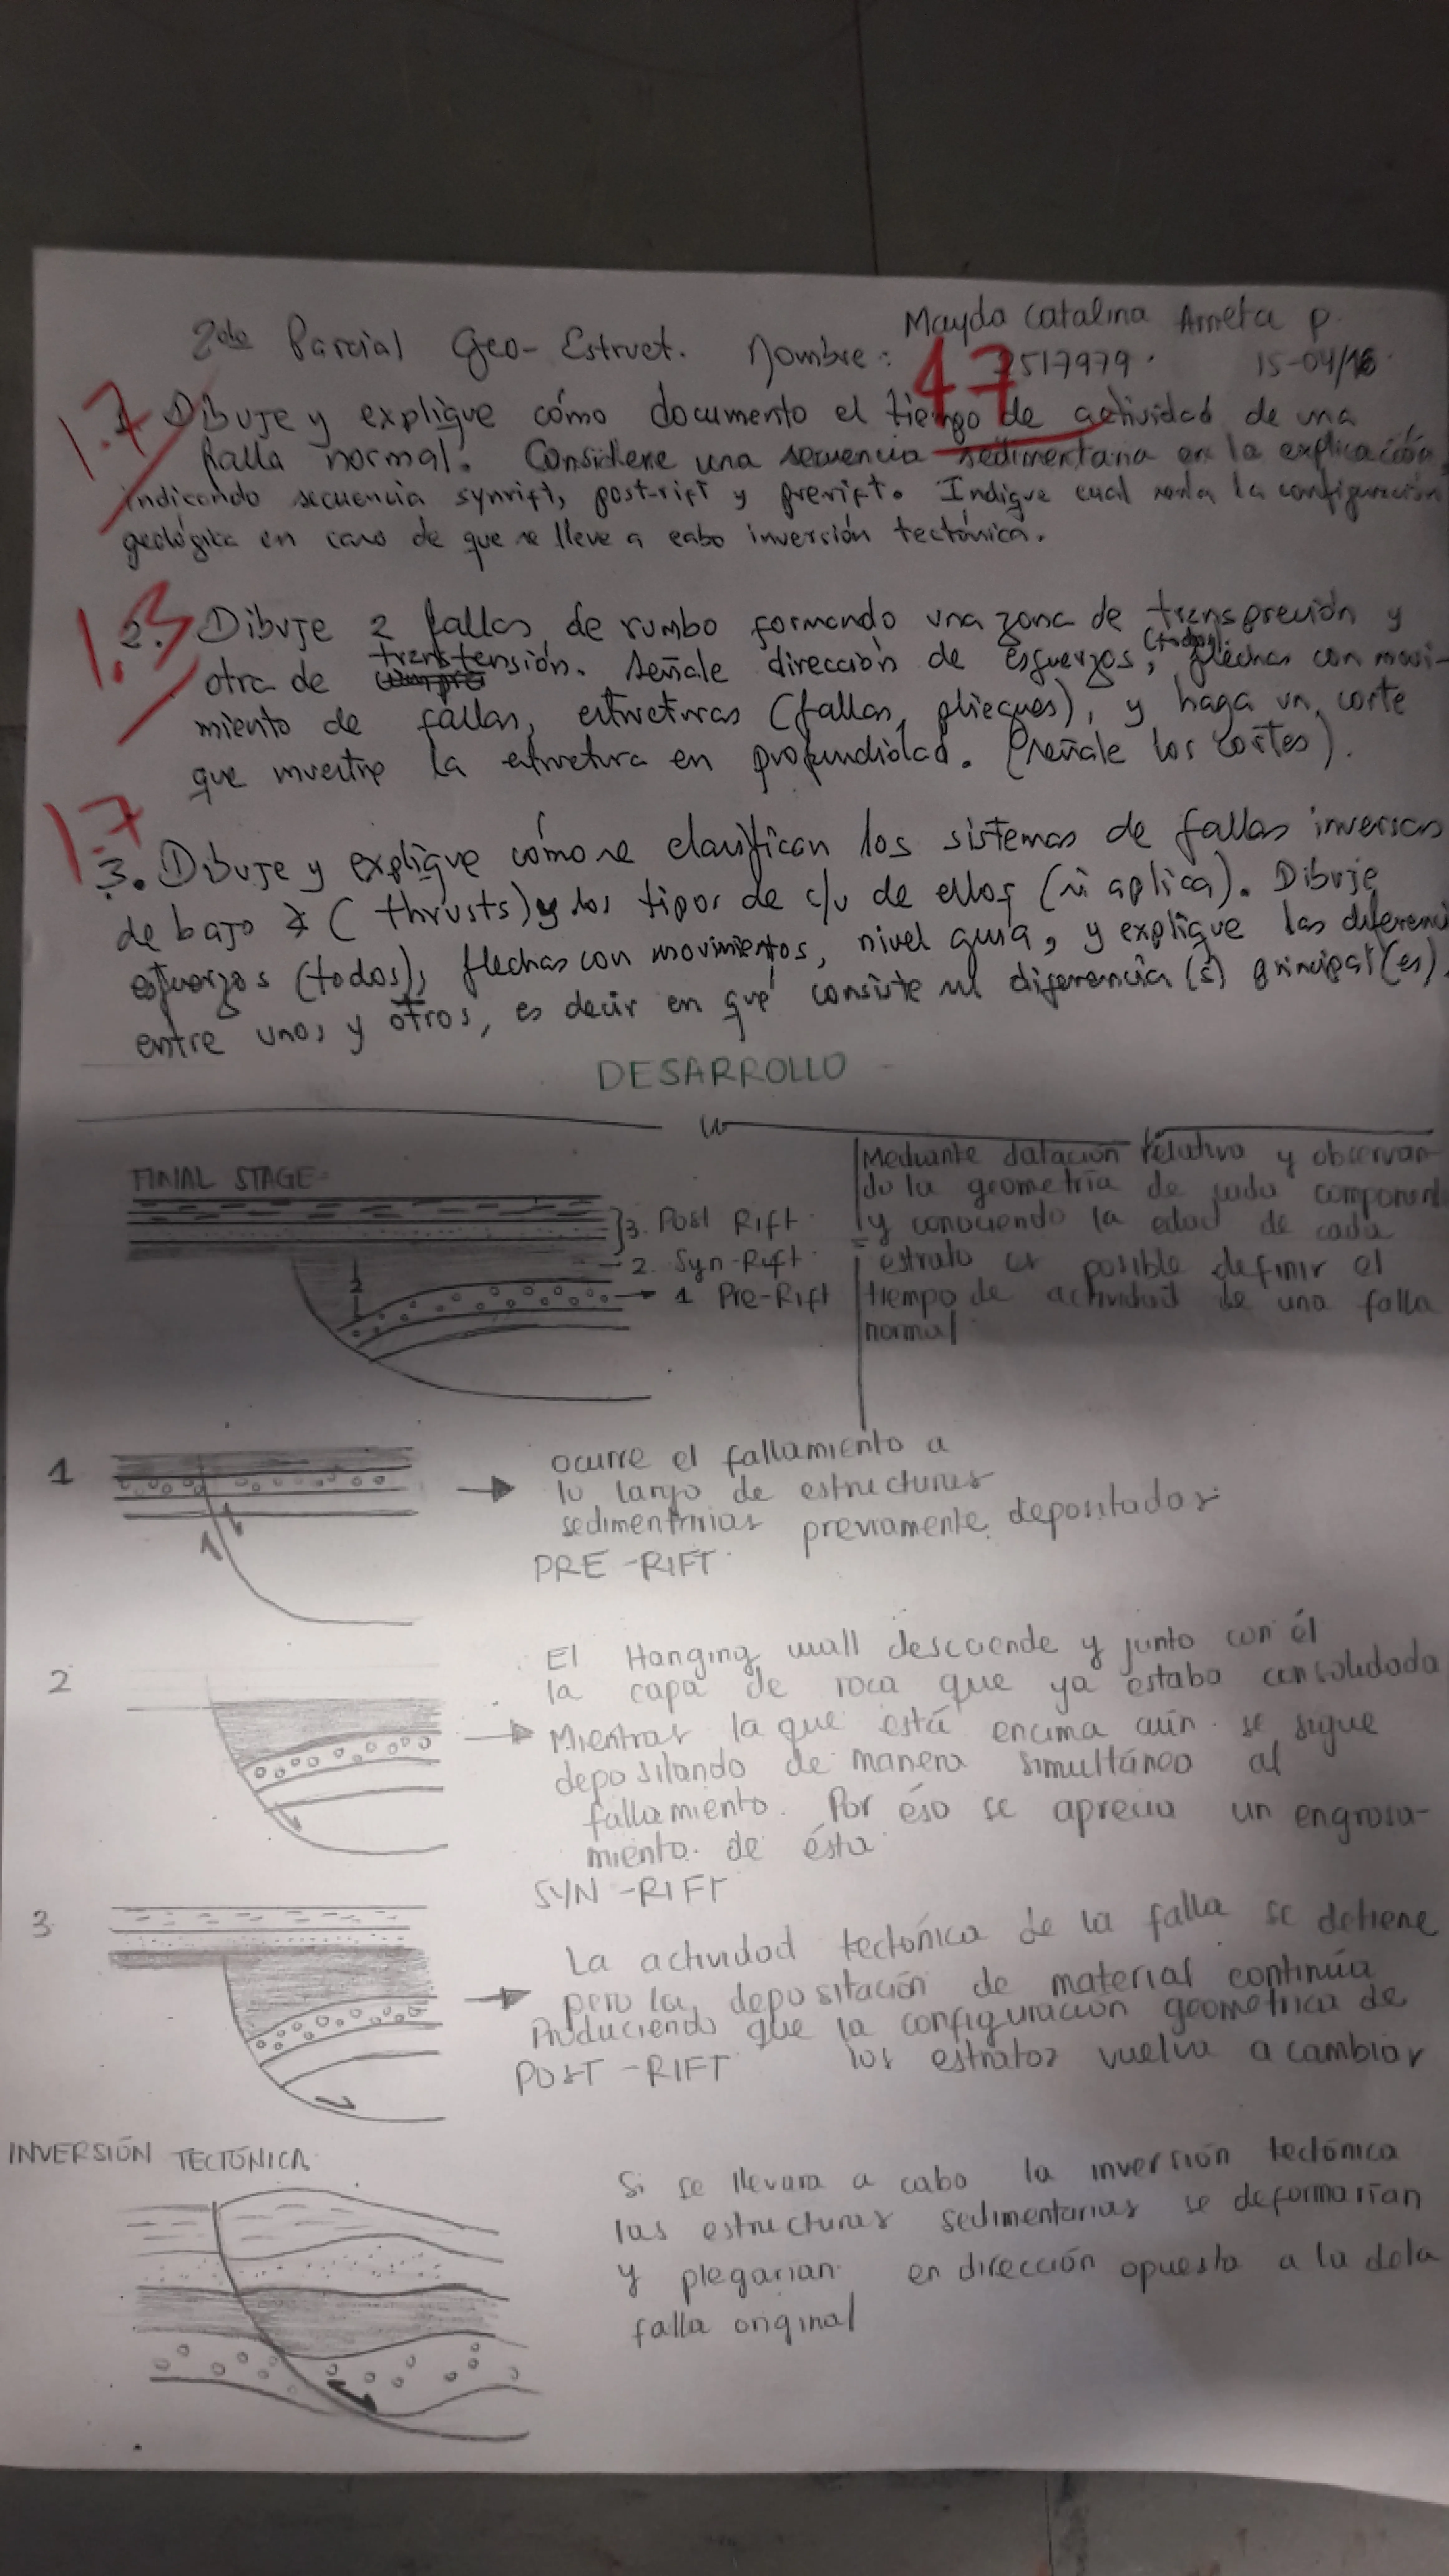 2do Parcial Geo-Estruct. Nombre: Mayda Catalina Arrieta P.
2517979. 15-04/16.
47
1.7
1. Dibuje y explique cómo documento el tiempo de actividad de una
falla normal. Considere una secuencia sedimentaria en la explicación,
indicando secuencia synrift, post-rift y prerift. Indique cual sería la configuración
geológica en caso de que se lleve a cabo inversión tectónica.
1.3
2. Dibuje 2 fallas de rumbo formando una zona de transpresión y
otra de transtensión. Señale dirección de esfuerzos, (todos) flechas con movi-
miento de fallas, estructuras (fallas, pliegues), y haga un corte
que muestre la estructura en profundidad. (señale los cortes).
1.7
3. Dibuje y explique cómo se clasifican los sistemas de fallas inversas
de bajo ∡ (thrusts) y los tipos de c/u de ellos (si aplica). Dibuje
esfuerzos (todos), flechas con movimientos, nivel guía, y explique las diferenci
entre unos y otros, es decir en qué consiste su diferencia(s) principal(es).
DESARROLLO
FINAL STAGE
3. Post Rift
2 Syn-Rift
1 Pre-Rift
2
Mediante datación relativa y observan-
do la geometría de cada component
y conociendo la edad de cada
estrato es posible definir el
tiempo de actividad de una falla
normal
1
ocurre el fallamiento a
lo largo de estructuras
sedimentarias previamente depositadas
PRE-RIFT
2
El Hanging wall desciende y junto con él
la capa de roca que ya estaba consolidada
Mientras la que está encima aún se sigue
depositando de manera simultánea al
fallamiento. Por éso se aprecia un engrosa-
miento de ésta
SYN-RIFT
3
La actividad tectónica de la falla se detiene
pero la depositación de material continúa
Produciendo que la configuración geométrica de
POST-RIFT los estratos vuelva a cambiar
INVERSIÓN TECTÓNICA
Si se llevara a cabo la inversión tectónica
las estructuras sedimentarias se deformarían
y plegarían en dirección opuesta a la de la
falla original